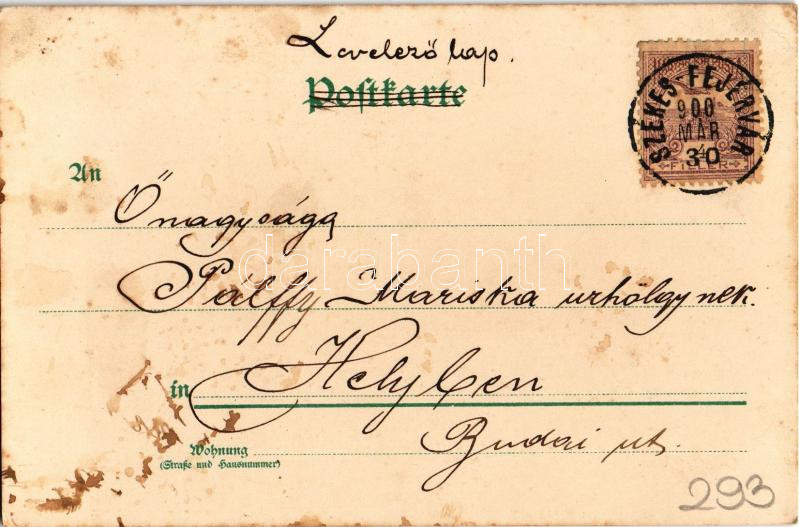 Levelező lap.
Postkarte
SZÉKES-FEJÉRVÁR
900
MÁR
30
FILLER
An
Őnagysága
Pálffy Mariska urhölgynek.
in Helyben
Budai ut.
Wohnung
(Straße und Hausnummer)
293
darabanth